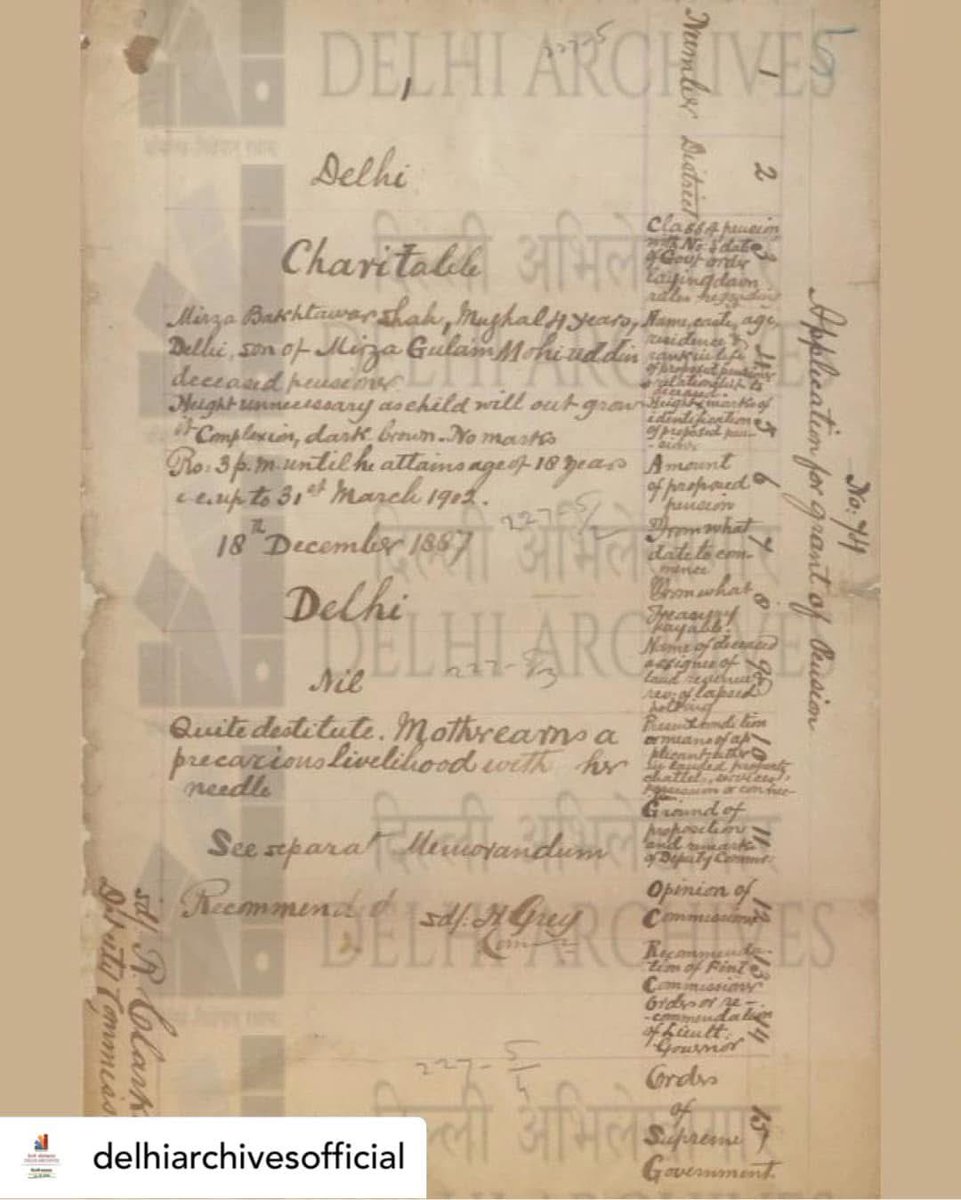 No: 44
Application for grant of Pension
5
1
Number
1
2
District
Delhi
3
Class of pension
with No. & date
of Govt order
laying down
rules regarding
Charitable
4
Name, caste, age,
residence &
rank in life
of proposed pensioner
& relationship to
deceased.
Mirza Bakhtawar Shah, Mughal 4 years,
Delhi, son of Mirza Gulam Mohiuddin
deceased pensioner
5
Height & marks of
identification
of proposed pen-
-sioner
Height unnecessary as child will out grow
it Complexion, dark brown. No marks
6
Amount
of proposed
pension
Rs: 3 p.m. until he attains age of 18 years
i.e. up to 31st March 1902.
7
From what
date to com-
mence
18th December 1887
8
From what
Treasury
payable.
Delhi
9
Name of deceased
assignee of
land revenue &
rev: of lapsed
holding
Nil
10
Present condition
or means of ap
plicant either
by landed property
chattels, services,
Quite destitute. Mother earns a
precarious livelihood with her
needle
11
Ground of
proposition
and remark
of Deputy Commr:
See separat Memorandum
12
Opinion of
Commissioner
Recommended
sd/. H Grey
Comr
13
Recommenda-
tion of Finl
Commissioner
14
Orders or re-
-commendation
of Lieut:
Governor
15
Orders
of
Supreme
Government.
sd/. R. Clark
Deputy Commiss
227-5
227-5/2
227-5/3
227-5/4
DELHI ARCHIVES
दिल्ली अभिलेखागार
दिल्ली अभिलेखागार
DELHI ARCHIVES
दिल्ली अभिलेखागार
DELHI ARCHIVES
दिल्ली अभिलेखागार
delhiarchivesofficial